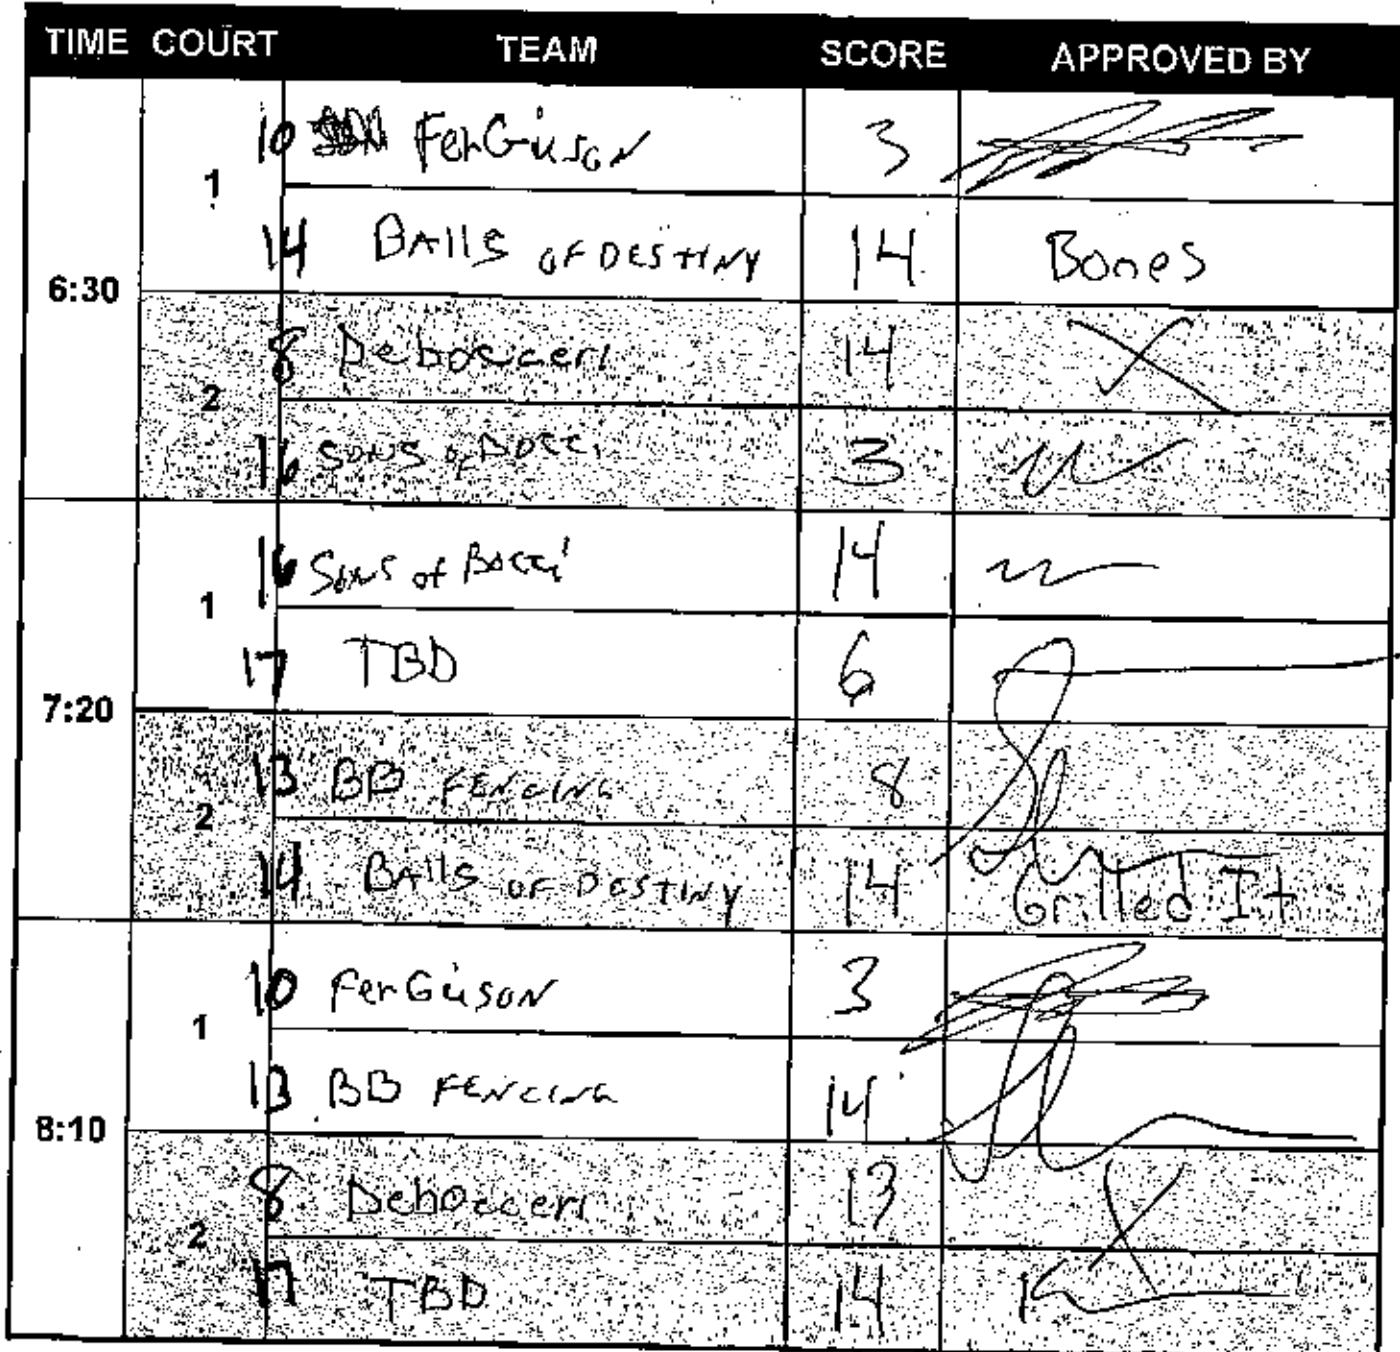 TIME COURT TEAM SCORE APPROVED BY
10 FerGuson 3
1
14 BAllS OF DESTINY 14 Bones
6:30
8 Debocceri 14 X
2
16 SONS of Bocci 3
16 Sons of Bocci 14
1
17 TBD 6
7:20
13 BB FENCING 8
2
14 BAllS OF DESTINY 14 Grilled It
10 FerGuson 3
1
13 BB FENCING 14
8:10
8 Debocceri 13 X
2
17 TBD 14